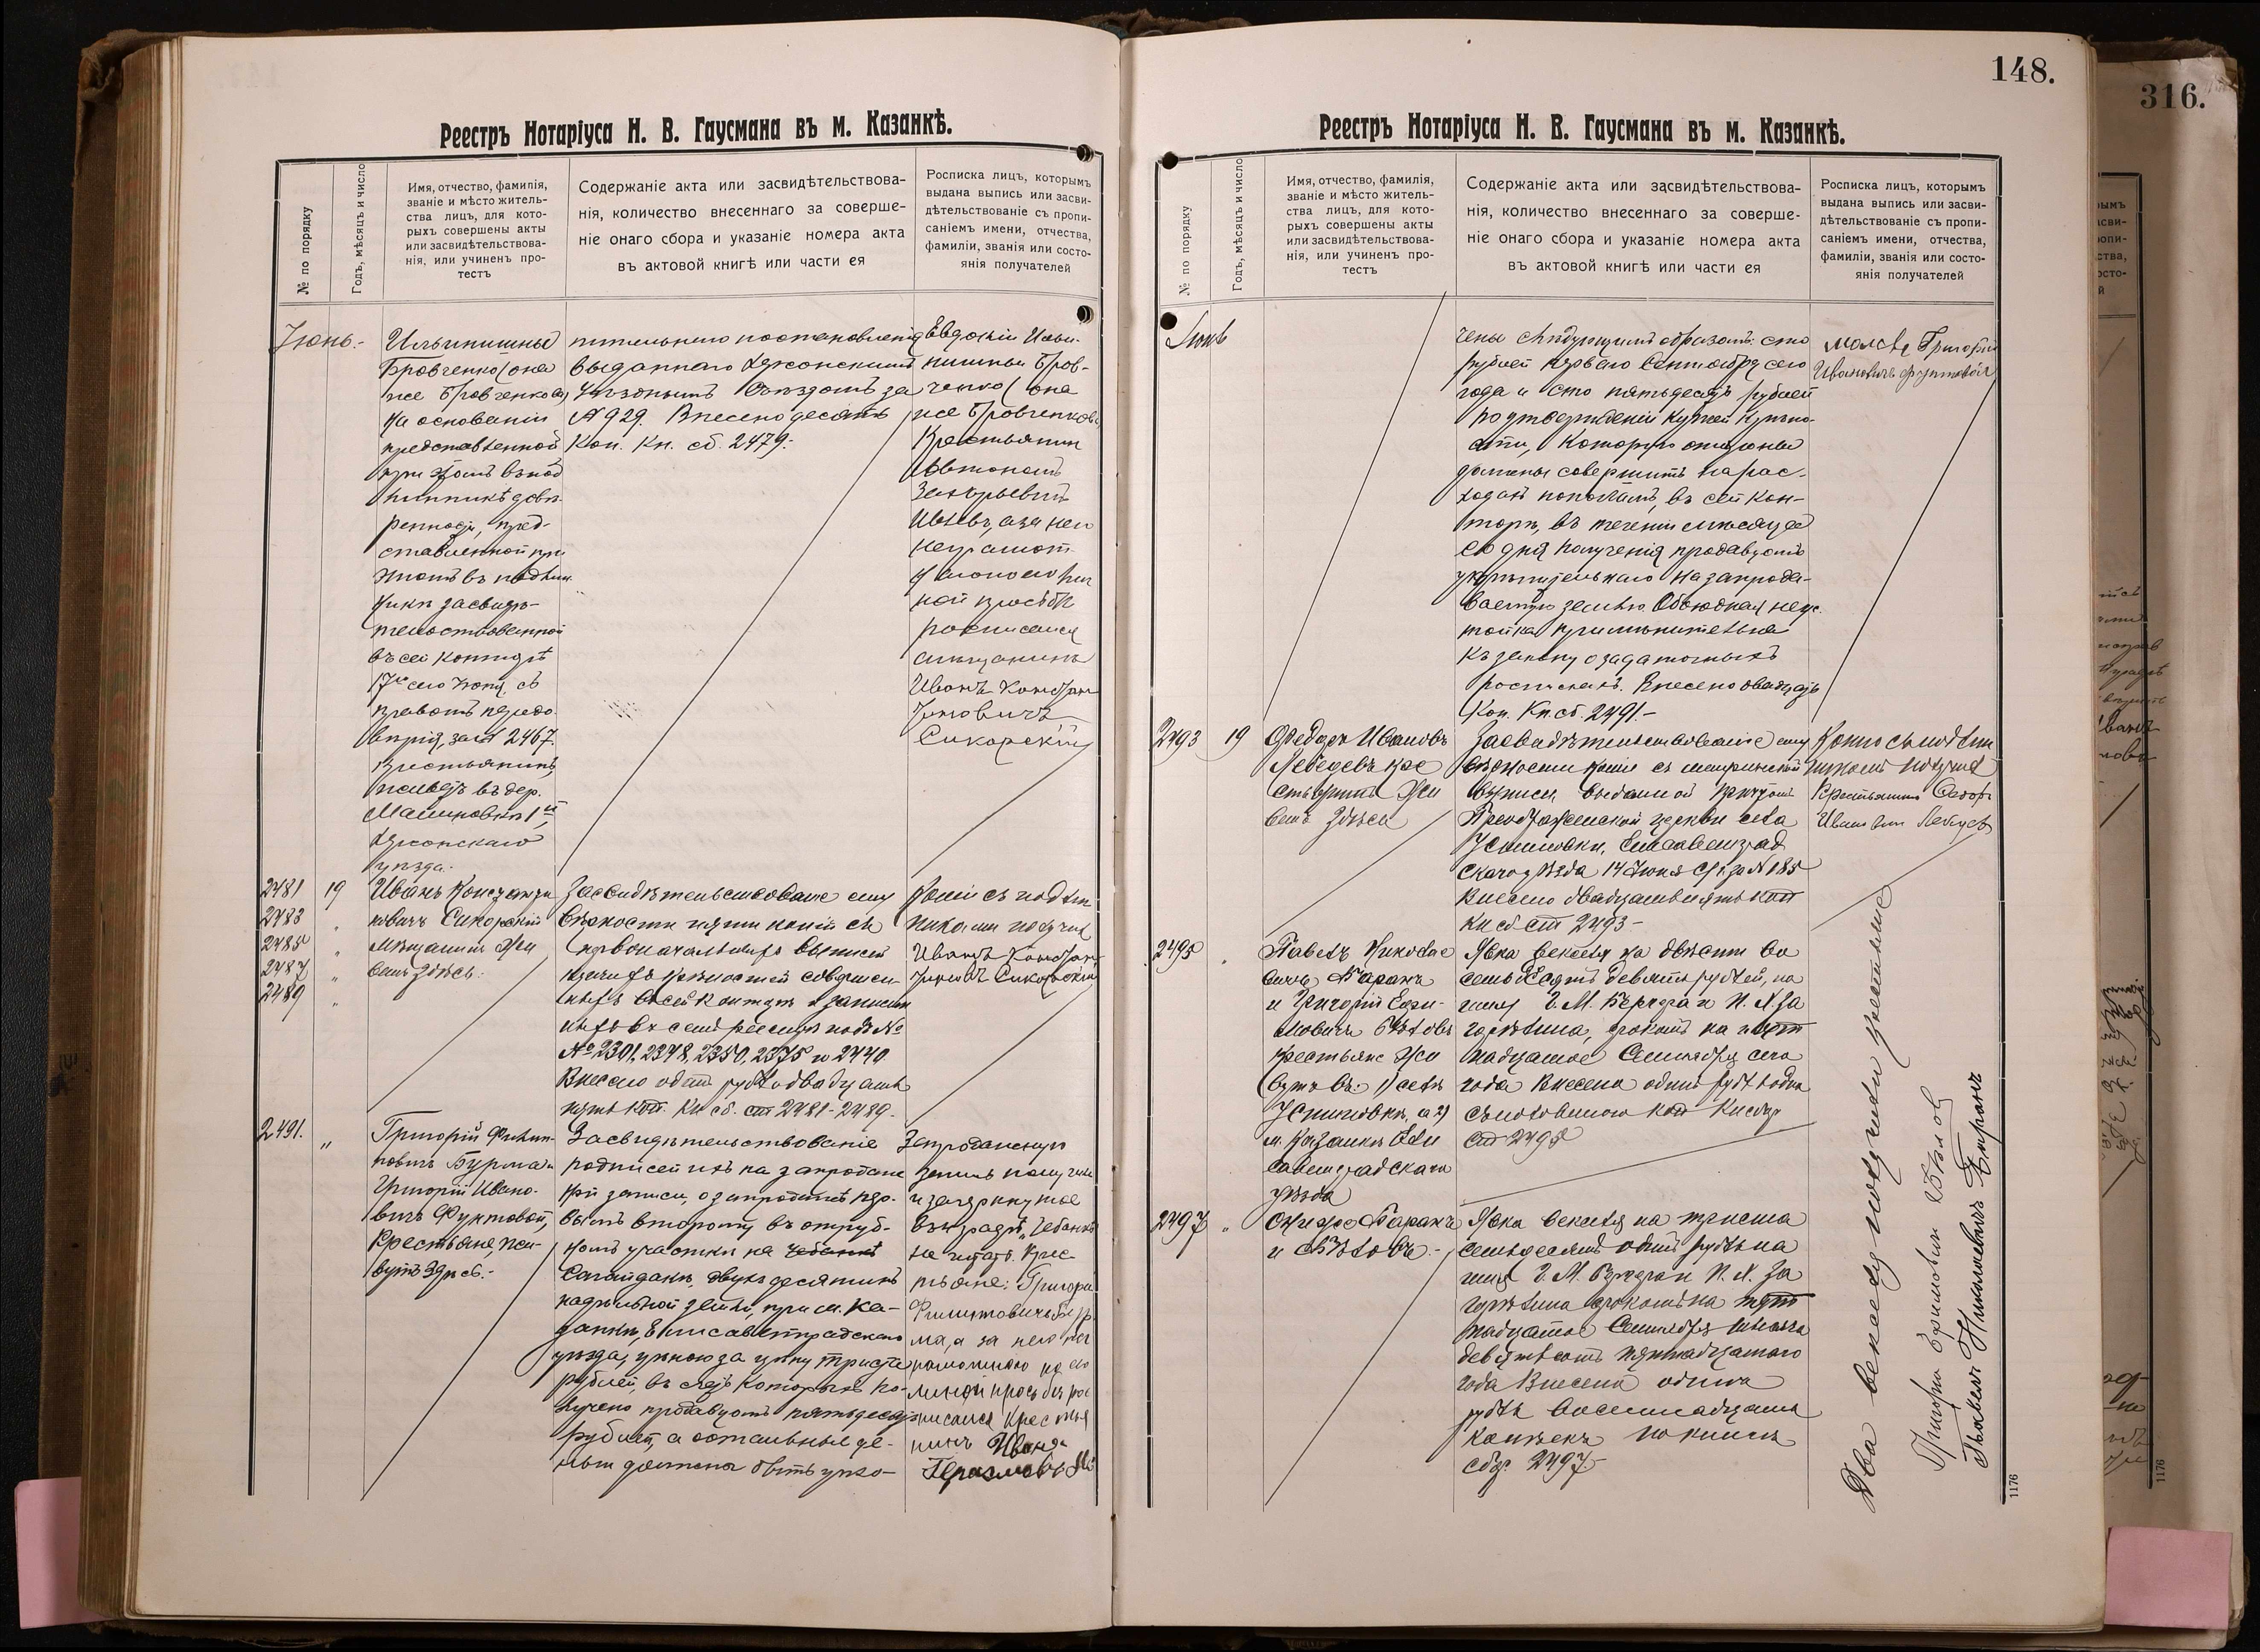 Реестръ Нотаріуса Н. В. Гаусмана въ м. Казанкѣ.
№ по порядку
Годъ, мѣсяцъ и число
Имя, отчество, фамилія,
званіе и мѣсто житель-
ства лицъ, для кото-
рыхъ совершены акты
или засвидѣтельствова-
нія, или учиненъ про-
тестъ
Содержаніе акта или засвидѣтельствова-
нія, количество внесеннаго за соверше-
ніе онаго сбора и указаніе номера акта
въ актовой книгѣ или части ея
Росписка лицъ, которымъ
выдана выпись или засви-
дѣтельствованіе съ пропи-
саніемъ имени, отчества,
фамиліи, званія или состо-
янія получателей
Іюнь.-
Ильинишны
Бровченко (она
же Бровченкова)
на основаніи
представленной
при этомъ въ под
линникѣ довѣ-
ренности, пред-
ставленной при
этомъ въ подлин
никѣ засвидѣ-
тельствованной
въ сей конторѣ
17го сего Іюня, съ
правомъ передо
вѣрія, за № 2467.
Крестьянинъ,
живетъ въ дер.
Малиновкѣ 1й,
Херсонскаго
уѣзда.
постановленія
выданнаго Херсонскимъ
Уѣзднымъ Съѣздомъ за
№ 929. Внесено десять
Коп. Кн. сб. 2479.-
Евдокіи Ильи-
нишны Бров-
ченко (она
же Бровченкова)
Крестьянинъ
Автономъ
Ивлевъ, а за него
неграмот-
наго по его лич
ной просьбѣ
росписался
мѣщанинъ
Иванъ Констан
тиновичъ
Сикорскій
2481
2483
2485
2487
2489
19
Иванъ Константи
новичъ Сикорскій
Мѣщанинъ жи
ветъ здѣсь.
Засвидѣтельствованіе ему
вѣрности пяти копій съ
первоначальныхъ выписей
крѣпостей совершен-
ныхъ въ сей конторѣ и записан
ныхъ въ семъ реестрѣ подъ №
№ 2301, 2348, 2350, 2375 и 2440
Внесено одинъ рубль двадцать
пять коп. Кн сб. ст 2481-2489.
Копіи съ подлин
никами получилъ
Иванъ Констан
тиновъ Сикорскій
2491.
Григорій Филип-
повичъ Бурма и
Григорій Ивано-
вичъ Фунтовой,
Крестьяне, жи-
вутъ здѣсь.-
Засвидѣтельствованіе
подписей ихъ на запродаж
ной записи, о запродажѣ пер-
вымъ второму въ отруб-
номъ участкѣ на Чебанкѣ
Сагайдакъ, двухъ десятинъ
надѣльной земли, при м. Ка-
занкѣ, Елисаветградскаго
уѣзда, цѣною за цѣну триста
рублей, въ счетъ которыхъ по-
лучено продавцомъ пятьдесятъ
рублей, а остальныя де-
ньги должны быть упло-
Запродажную
запись получили
и зачеркнутое
на читать. Крес
тьяне: Григорій
Филипповичъ Бур
ма, а за него не
грамотнаго по его
личной просьбѣ рос
писался Крестья
нинъ Иванъ
148.
316.
Реестръ Нотаріуса Н. В. Гаусмана въ м. Казанкѣ.
№ по порядку
Годъ, мѣсяцъ и число
Имя, отчество, фамилія,
званіе и мѣсто житель-
ства лицъ, для кото-
рыхъ совершены акты
или засвидѣтельствова-
нія, или учиненъ про-
тестъ
Содержаніе акта или засвидѣтельствова-
нія, количество внесеннаго за соверше-
ніе онаго сбора и указаніе номера акта
въ актовой книгѣ или части ея
Росписка лицъ, которымъ
выдана выпись или засви-
дѣтельствованіе съ пропи-
саніемъ имени, отчества,
фамиліи, званія или состо-
янія получателей
Іюнь
чены слѣдующимъ образомъ: сто
рублей перваго Сентября сего
года и сто пятьдесятъ рублей
по утвержденіи купчей крѣпо-
сти, которую стороны
должны совершить на рас-
ходахъ пополамъ, въ сей кон-
торѣ, въ теченіи мѣсяца
со дня полученія продавцомъ
укрѣпительнаго на запрода-
ваемую землю. Обоюдная неус-
тойка примѣнительно
къ закону о задаточныхъ
роспискахъ. Внесено двадцать
Коп. Кн. сб. 2491.-
Григорій
Ивановичъ Фунтовой
2493
19
Федоръ Ивановъ
Лебедевъ кре
стьянинъ жи
ветъ здѣсь
Засвидѣтельствованіе ему
вѣрности копіи съ метрической
выписи, выданной причтомъ
Преображенской церкви села
Устиновки, Елисаветград
скаго уѣзда 14 Іюня с/г за № 185
Внесено двадцать пять коп
Кн сб ст 2493-
Копію съ подлин
никомъ получилъ
Крестьянинъ Федоръ
Ивановъ Лебедевъ
2495
Павелъ Николае
вичъ Баранъ
и Григорій Ефи-
мовичъ Бѣловъ
крестьяне жи
вутъ въ: 1) селѣ
Устиновкѣ, а 2)
м. Казанкѣ Ели
саветградскаго
уѣзда
Явка векселя на двѣсти во
семьдесятъ девять рублей, на
имя Г. М. и И. Л. За
срокомъ на пят
надцатое Сентября сего
года Внесено одинъ рубль одна
съ половиною коп Кн сбор
ст 2495
2497
Они же Баранъ
и Бѣловъ.-
Явка векселя на триста
семьдесятъ одинъ рубль на
имя Г. М. и И. Л. За
срокомъ на пят
надцатое Сентября тысяча
девятьсотъ пятнадцатаго
года Внесено одинъ
рубль восемнадцать
копѣекъ по книгѣ
сбор. 2497.-
Два векселя получили крестьяне
Григорій Ефимовичъ Бѣлов
Павелъ Николаевичъ Баранъ
1176
1176